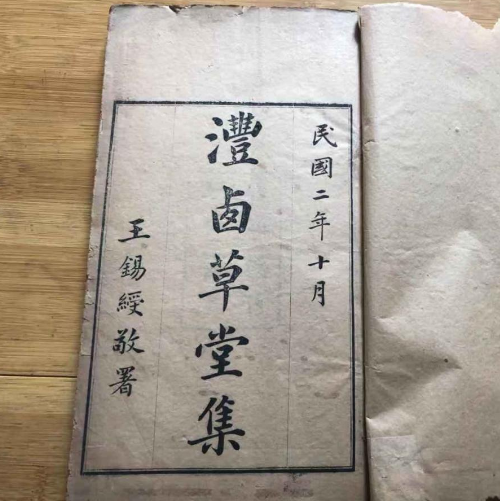 民國二年十月
灃卤草堂集
王錫綬敬署